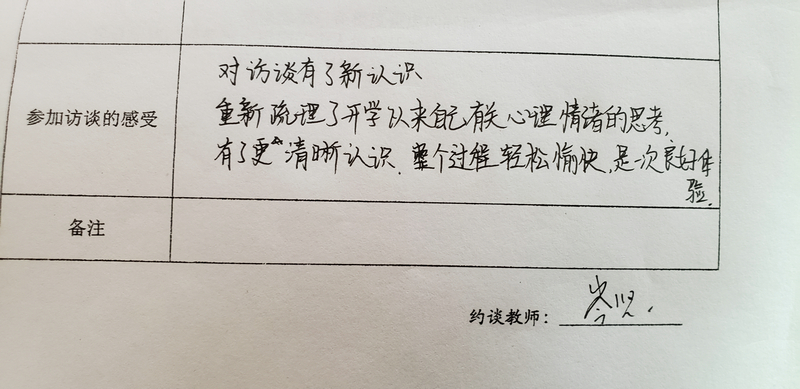 对访谈有了新认识
参加访谈的感受
重新疏理了开学以来自己有关心理情绪的思考,
有了更清晰认识.整个过程轻松愉快,是一次良好体
验.
备注
约谈教师: